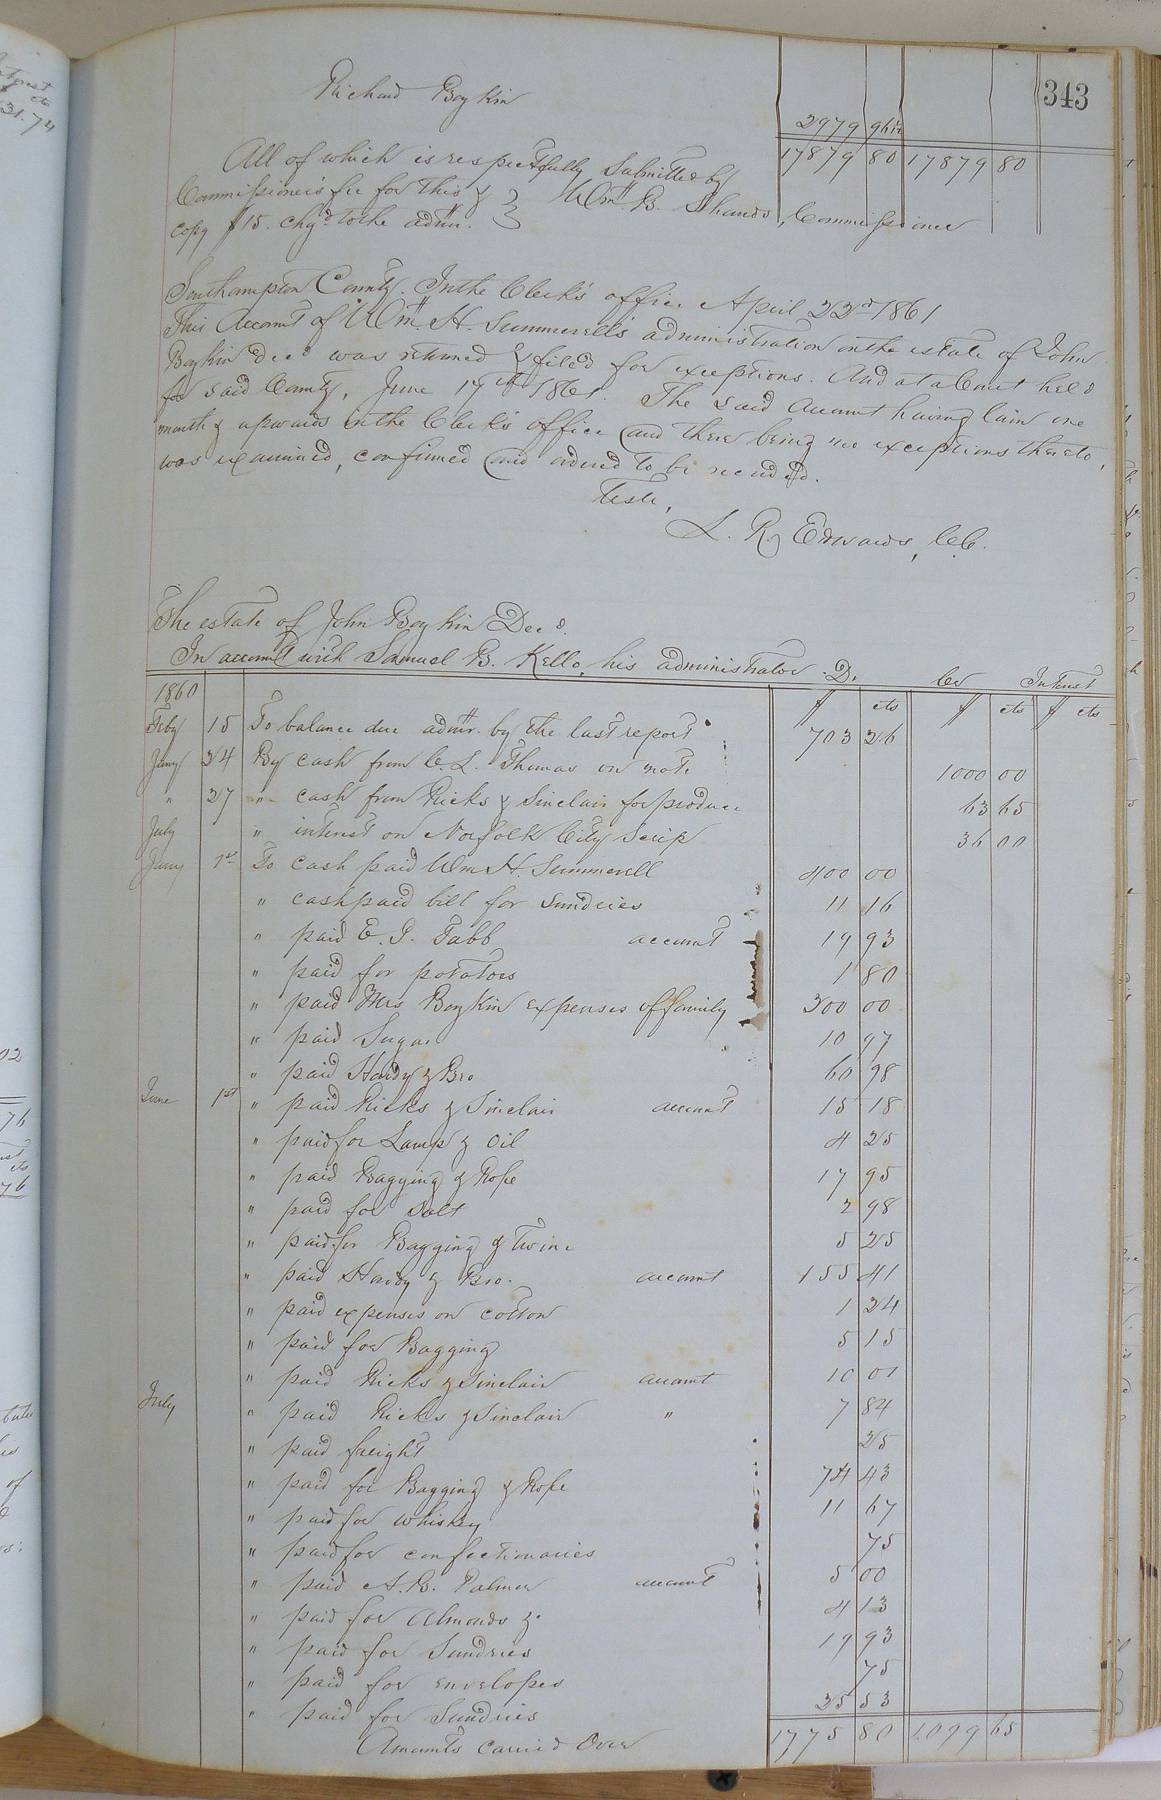 343
Richard Boykin
2979 96½
17879 80 17879 80
All of which is respectfully submitted by
Commissioner's fee for this & } Wm. B. Shands, Commissioner
copy $15. chgd to the admr. }
Southampton County. In the Clerk's office April 22nd 1861
This Account of Wm. H. Summerell's administration on the estate of John
Boykin Decd was returned & filed for exceptions. And at a Court held
for said County, June 17th 1861. The said account having lain one
month & upwards in the Clerk's office and there being no exceptions thereto,
was examined, confirmed and ordered to be recorded.
Teste,
L. R. Edwards, C.C.
The estate of John Boykin Decd.
In account with Samuel B. Kello, his administrator Dr. Cr Interest
1860 $ cts $ cts $ cts
Feby 15 To balance due admr. by the last report 703 26
Jany 24 By cash from C. L. Thomas on note 1000 00
" 27 " cash from Ricks & Sinclair for produce 63 65
July " interest on Norfolk City Scrip 36 00
Jany 1st To cash paid Wm H. Summerell 400 00
" cash paid bill for sundries 11 16
" paid E. J. Tabb account 19 93
" paid for potatoes 1 80
" paid Mrs Boykin expenses of family 300 00
" paid Sugar 10 97
" paid Hardy & Bro 60 98
June 1st " paid Ricks & Sinclair account 15 18
" paid for Lamp & Oil 4 25
" paid Bagging & Rope 17 95
" paid for salt 2 98
" paid for Bagging & Twine 5 25
" paid Hardy & Bro. account 155 41
" paid expenses on cotton 1 24
" paid for Bagging 5 15
" paid Ricks & Sinclair account 10 01
July " paid Ricks & Sinclair " 7 84
" paid freight 25
" paid for Bagging & Rope 74 43
" paid for whiskey 11 67
" paid for confectionaries 75
" paid A. B. Palmer account 5 00
" paid for Almonds &. 4 13
" paid for Sundries 19 93
" paid for envelopes 75
" paid for Sundries 25 53
Amounts carried Over 1775 80 1099 65